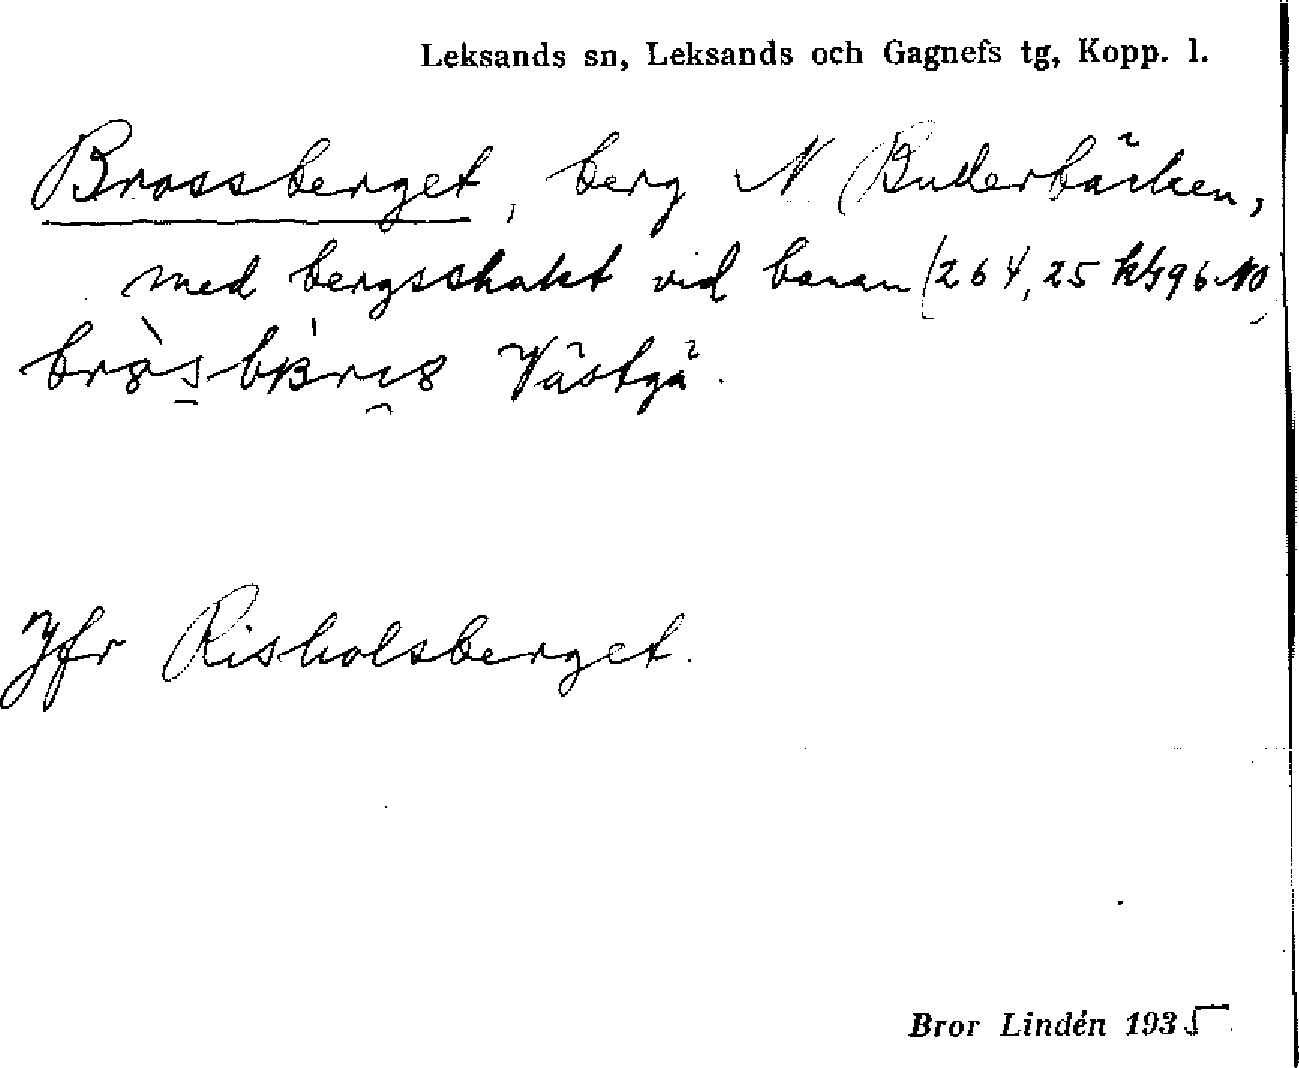 Leksands sn, Leksands och Gagnefs tg, Kopp. l.
Brossberget, berg N Bullerbäcken,
med bergsskakt vid banan (264,25
Västgä.
Jfr Risholsberget.
Bror Lindén 1935